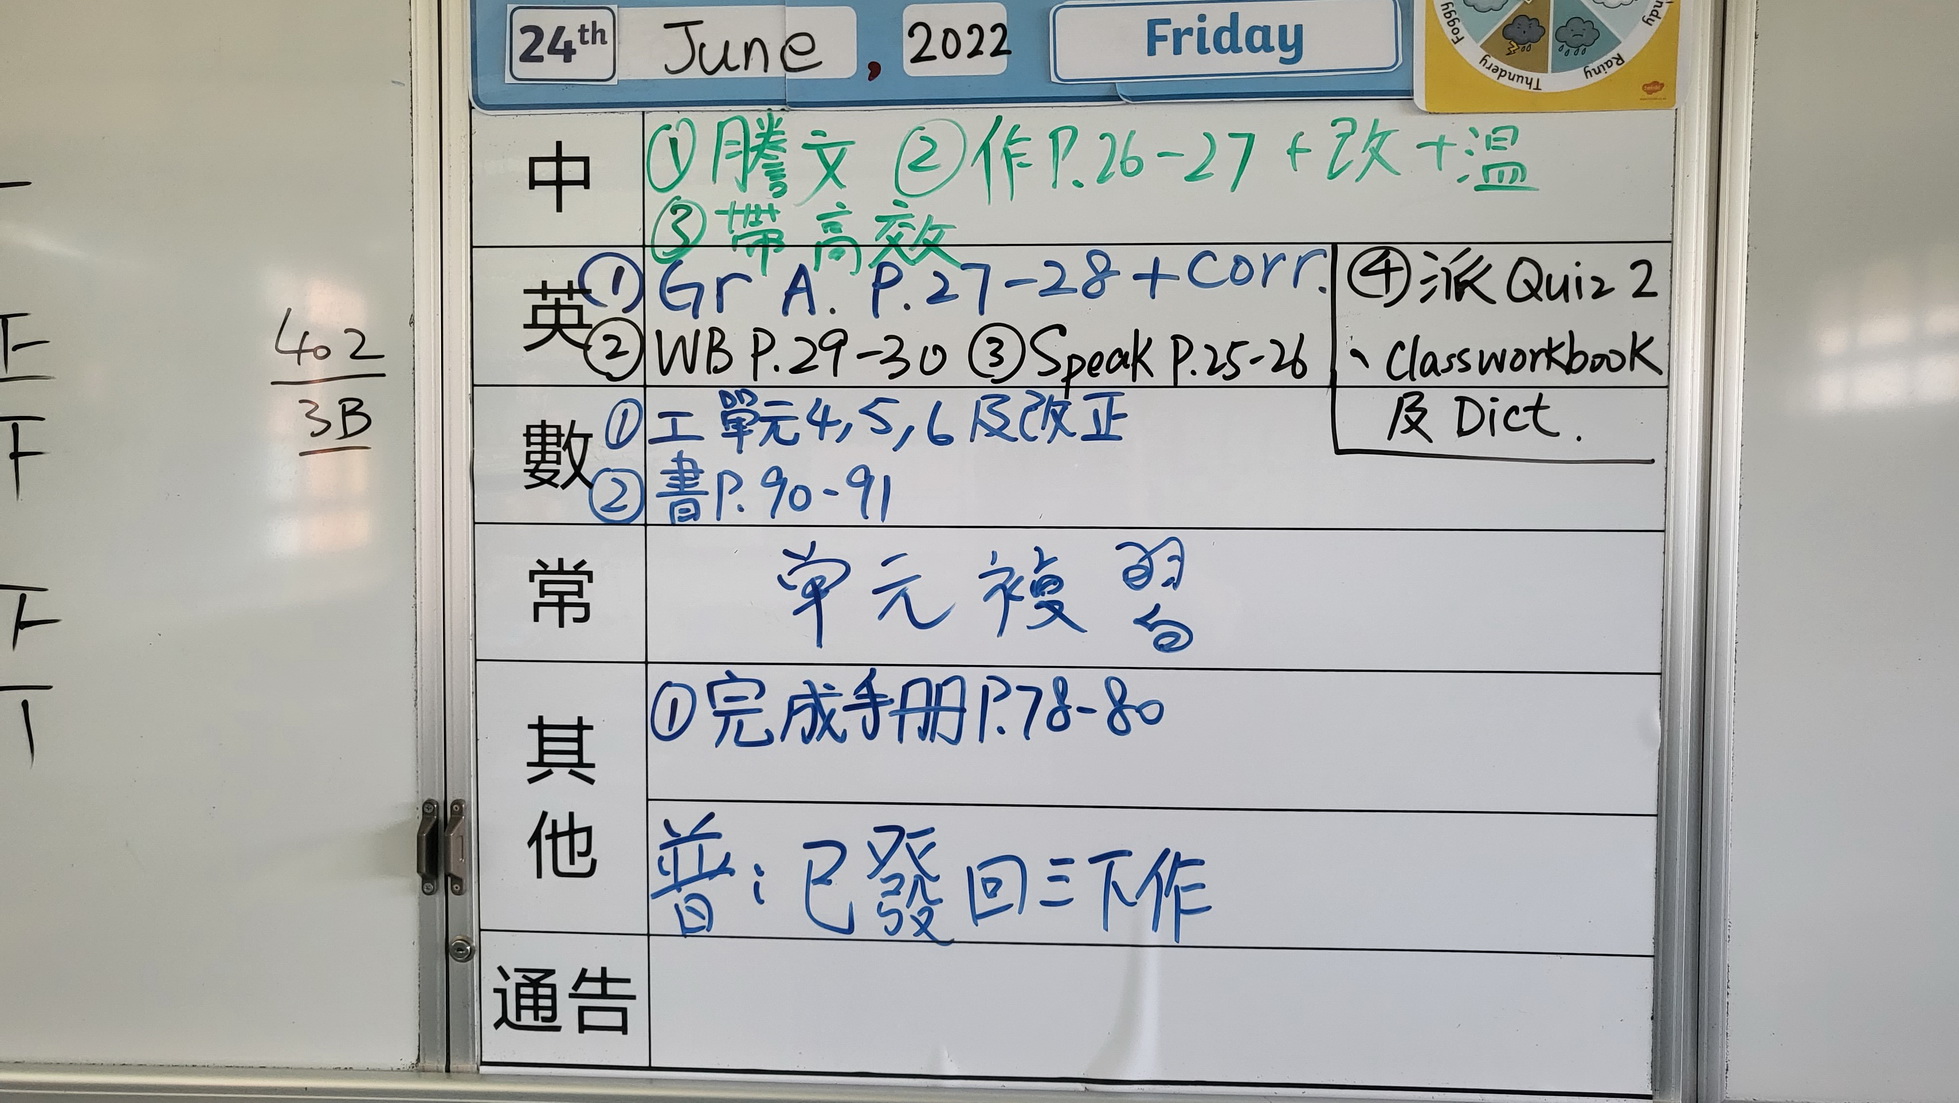 24th June, 2022 Friday
Foggy Thundery Rainy
中
①謄文 ②作P.26-27+改+溫
③帶高效
英
①Gr A. P.27-28+corr.
②WB P.29-30 ③Speak P.25-26
④派Quiz 2
、Classworkbook
及Dict.
數
①工單元4,5,6及改正
②書P.90-91
常
单元複習
其他
①完成手冊P.78-80
普:已發回三下作
通告
402
3B